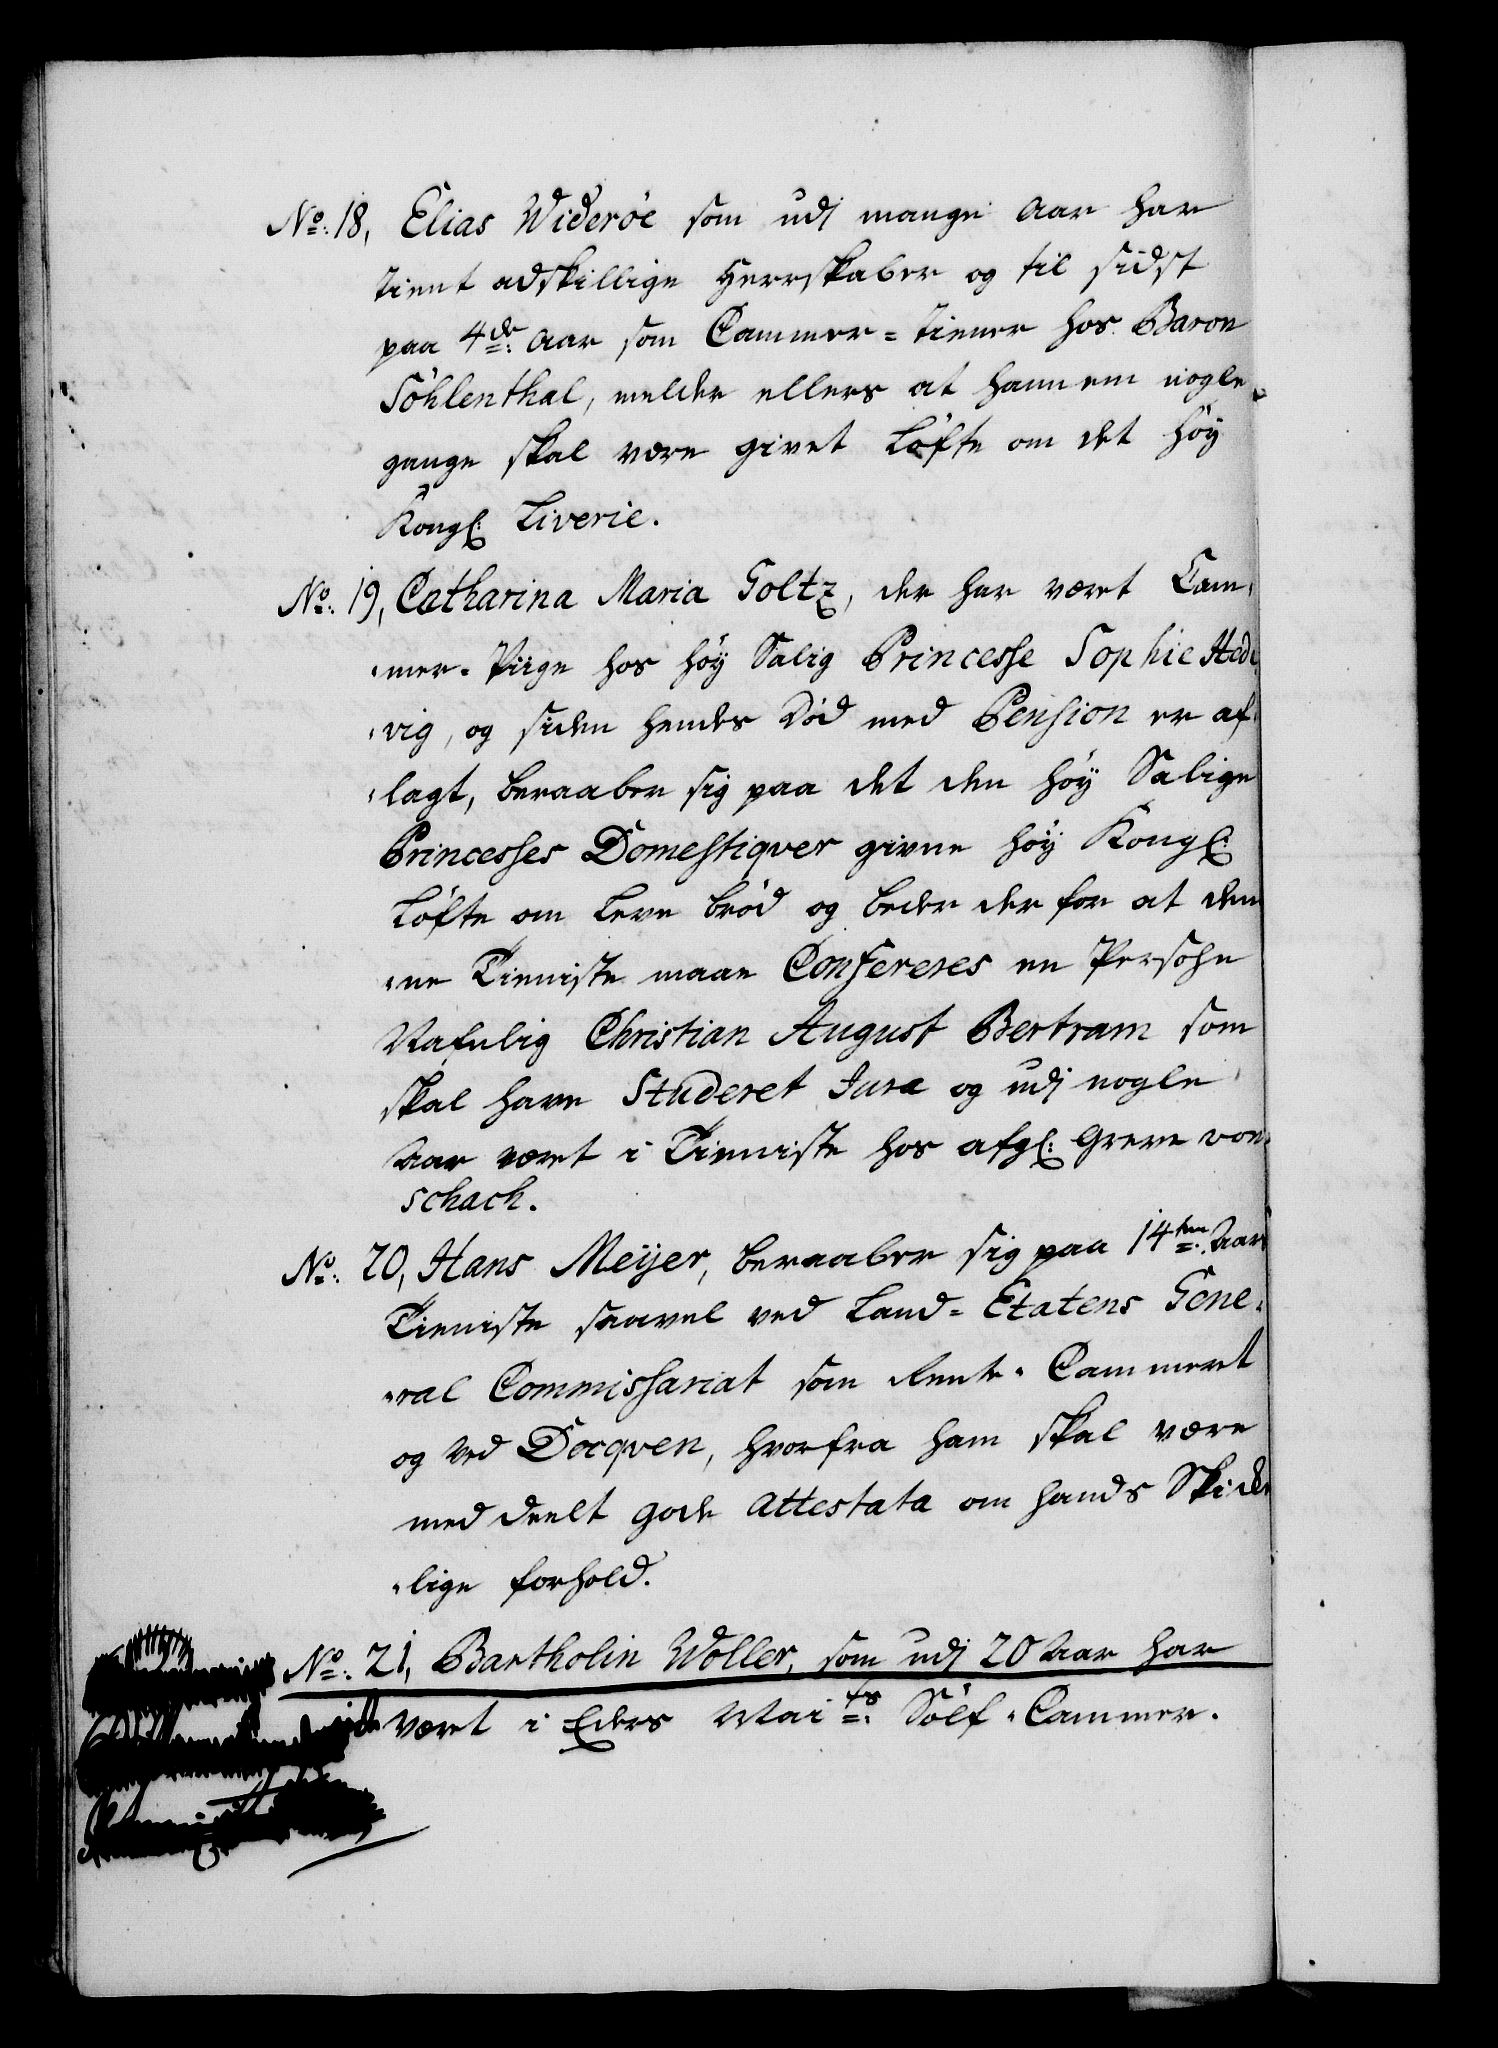 No: 18, Elias Widerøe som udj mange Aar har
tient adskillige Herrskaber og til sidst
paa 4de: Aar som Cammer=tiener hos Baron
Söhlenthal, melder ellers at hannem nogle
gange skal være givet Løfte om det høy
Kongl: Liverie.
No: 19, Catharina Maria Goltz, der har været Cam-
-mer-Piige hos høy Salig Princesse Sophie Hed-
-vig, og siden hendes Død med Pension er af-
-lagt, beraaber sig paa det den høy Salige
Princesses Domestiqver givne høy Kongl:
Løfte om Leve brød og beder der for at den-
-ne Tieniste maae Confereres en Persohn
Nafnlig Christian August Bertram som
skal have Studeret Jura og udj nogle
Aar været i Tieniste hos afgl: Greve von
Schach.
No: 20, Hans Meÿer, beraaber sig paa 14ten: Aars
Tieniste saavel ved Land=Etatens Gene-
-ral Commissariat som Rente-Cammeret
og ved Docqven, hvorfra ham skal være
meddeelt gode Attestata om hands Skicke-
-lige forhold.
No: 21, Bartholin Wöller, som udj 20 Aar har
været i Eders Maits: Sölf-Cammer.